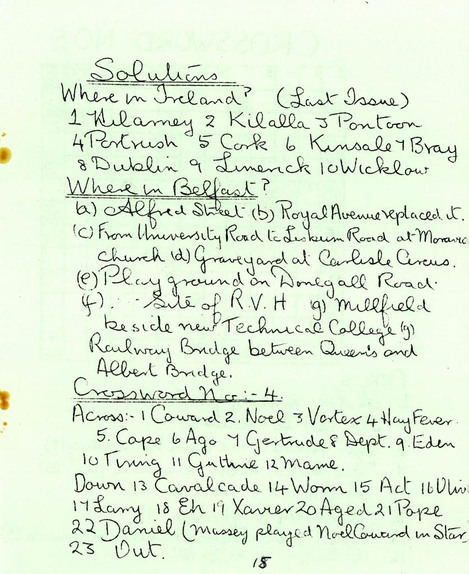 Solutions
Where in Ireland? (Last Issue)
1 Kilarney 2 Kilalla 3 Pontoon
4 Portrush 5 Cork 6 Kinsale 7 Bray
8 Dublin 9 Limerick 10 Wicklow
Where in Belfast?
(a) Alfred Street (b) Royal Avenue replaced it.
(c) From University Road to Lisburn Road at Moravia
church (d) Graveyard at Carlisle Circus.
(e) Playground on Donegall Road.
(f) . . . Site of R.V.H (g) Millfield
beside new Technical College (g)
Railway Bridge between Queen's and
Albert Bridge.
Crossword No:- 4.
Across:- 1 Coward 2. Noel 3 Vortex 4 Hay Fever.
5. Cape 6 Ago 7 Gertrude 8 Dept. 9. Eden
10 Timing 11 Guthrie 12 Mame.
Down 13 Cavalcade 14 Worn 15 Act 16 Olivi
17 Larry 18 Eh 19 Xavier 20 Aged 21 Pope
22 Daniel (Massey played Noel Coward in Star
23 Out.
18